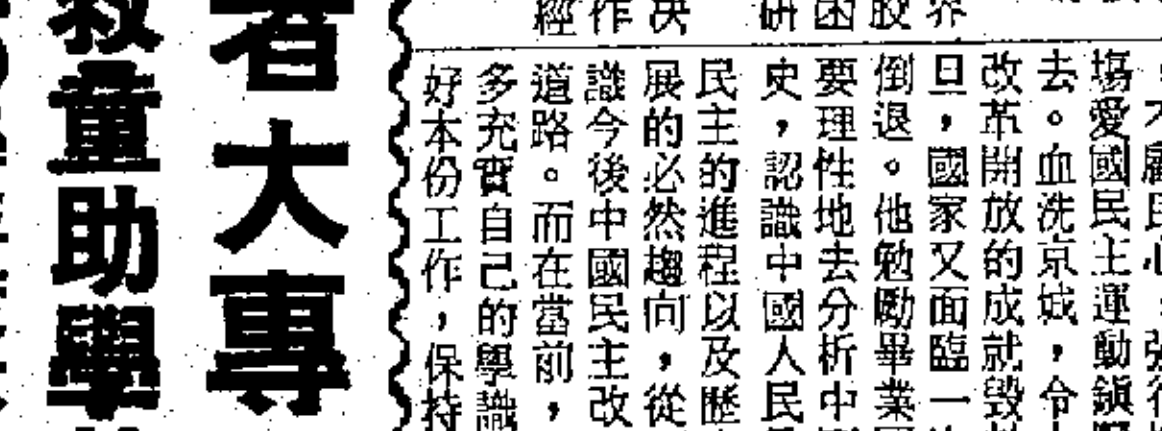 界
股
困
研
决
作
經
不顧民心，强行
塲愛國民主運動鎮
去。血洗京城，令
改革開放的成就毀
旦，國家又面臨一
倒退。他勉勵畢業
要理性地去分析中
史，認識中國人民
民主的進程以及歷
展的必然趨向，從
識今後中國民主改
道路。而在當前，
多充實自己的學識
好本份工作，保持
者大專
救童助學